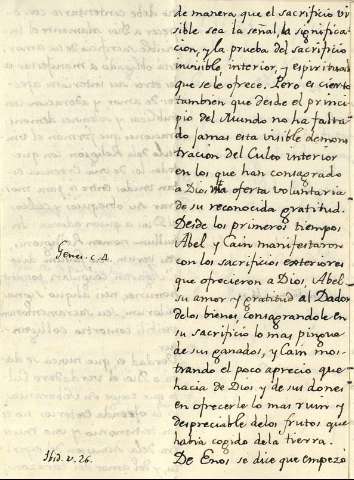 de manera que el sacrificio vi
sible sea la señal, la significa
cion, y la prueba del sacrificio
invisible, interior, y espiritual
que se le ofrece. Pero es cierto
tambien que desde el princi
pio del Mundo no ha falta
do jamas esta visible demon
tracion del Culto interior
en los que han consagrado
a Dios, la oferta voluntaria
de su reconocida gratitud.
Desde los primeros tiempos
Abel y Cain manifestaron
Genes. c. 4.
con los sacrificios exteriores
que ofrecieron a Dios, Abel
su amor y gratitud al Dador
de los bienes, consagrandole en
su sacrificio lo mas pingue
de sus ganados, y Cain mos-
trando el poco aprecio que
hacia de Dios y de sus dones
en ofrecerle lo mas ruin y
despreciable delos frutos que
havia cogido dela tierra.
Ibid. v. 26.
De Enos se dice que empezó